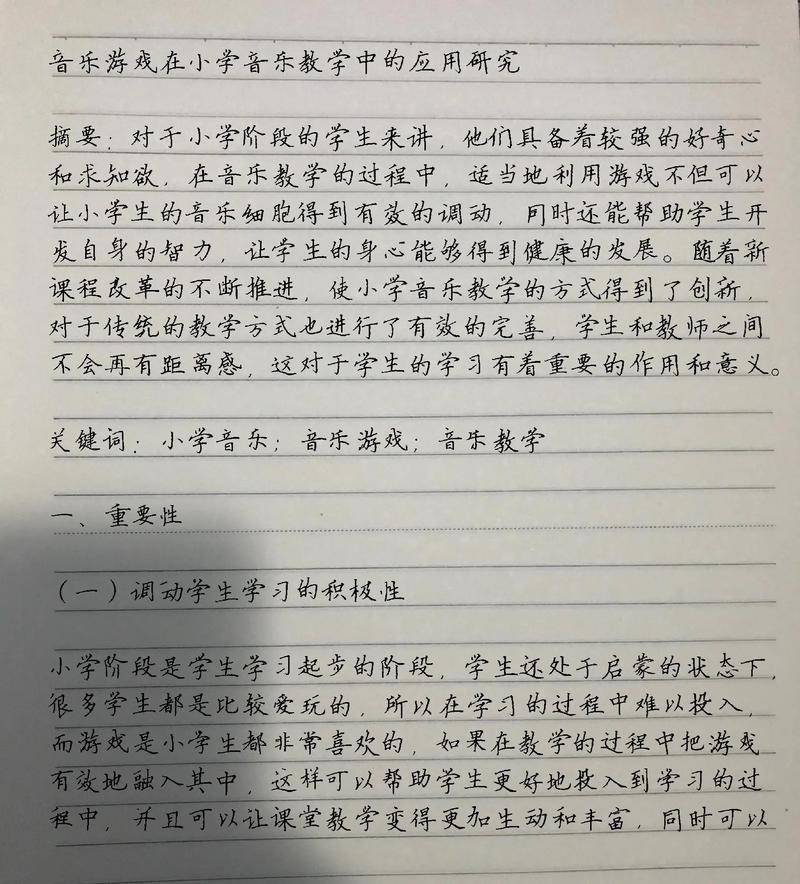 音乐游戏在小学音乐教学中的应用研究
摘要：对于小学阶段的学生来讲，他们具备着较强的好奇心
和求知欲，在音乐教学的过程中，适当地利用游戏不但可以
让小学生的音乐细胞得到有效的调动，同时还能帮助学生开
发自身的智力，让学生的身心能够得到健康的发展。随着新
课程改革的不断推进，使小学音乐教学的方式得到了创新，
对于传统的教学方式也进行了有效的完善，学生和教师之间
不会再有距离感，这对于学生的学习有着重要的作用和意义。
关键词：小学音乐；音乐游戏；音乐教学
一、重要性
（一）调动学生学习的积极性
小学阶段是学生学习起步的阶段，学生还处于启蒙的状态下，
很多学生都是比较爱玩的，所以在学习的过程中难以投入，
而游戏是小学生都非常喜欢的，如果在教学的过程中把游戏
有效地融入其中，这样可以帮助学生更好地投入到学习的过
程中，并且可以让课堂教学变得更加生动和丰富，同时可以